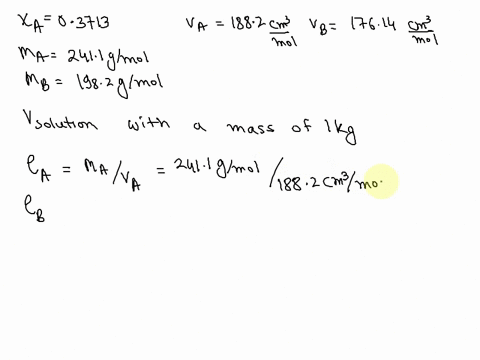 xA = 0.3713
VA = 188.2 cm³/mol VB = 176.14 cm³/mol
MA = 241.1 g/mol
MB = 198.2 g/mol
Vsolution with a mass of 1kg
ρA = MA/VA = 241.1 g/mol / 188.2 cm³/mo
ρB